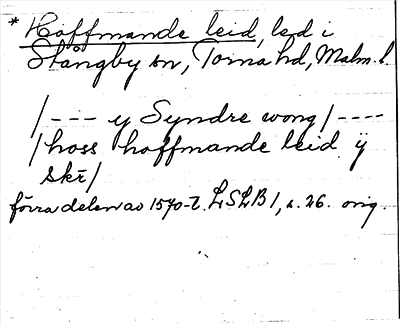 * Hoffmande leid, led i
Stångby sn, Torna hd, Malm. l.
/--- y Syndre wong/----
/hoss hoffmande leid ÿ
skr/
förra delen av 1570-t. LSLB 1, s. 26. orig.